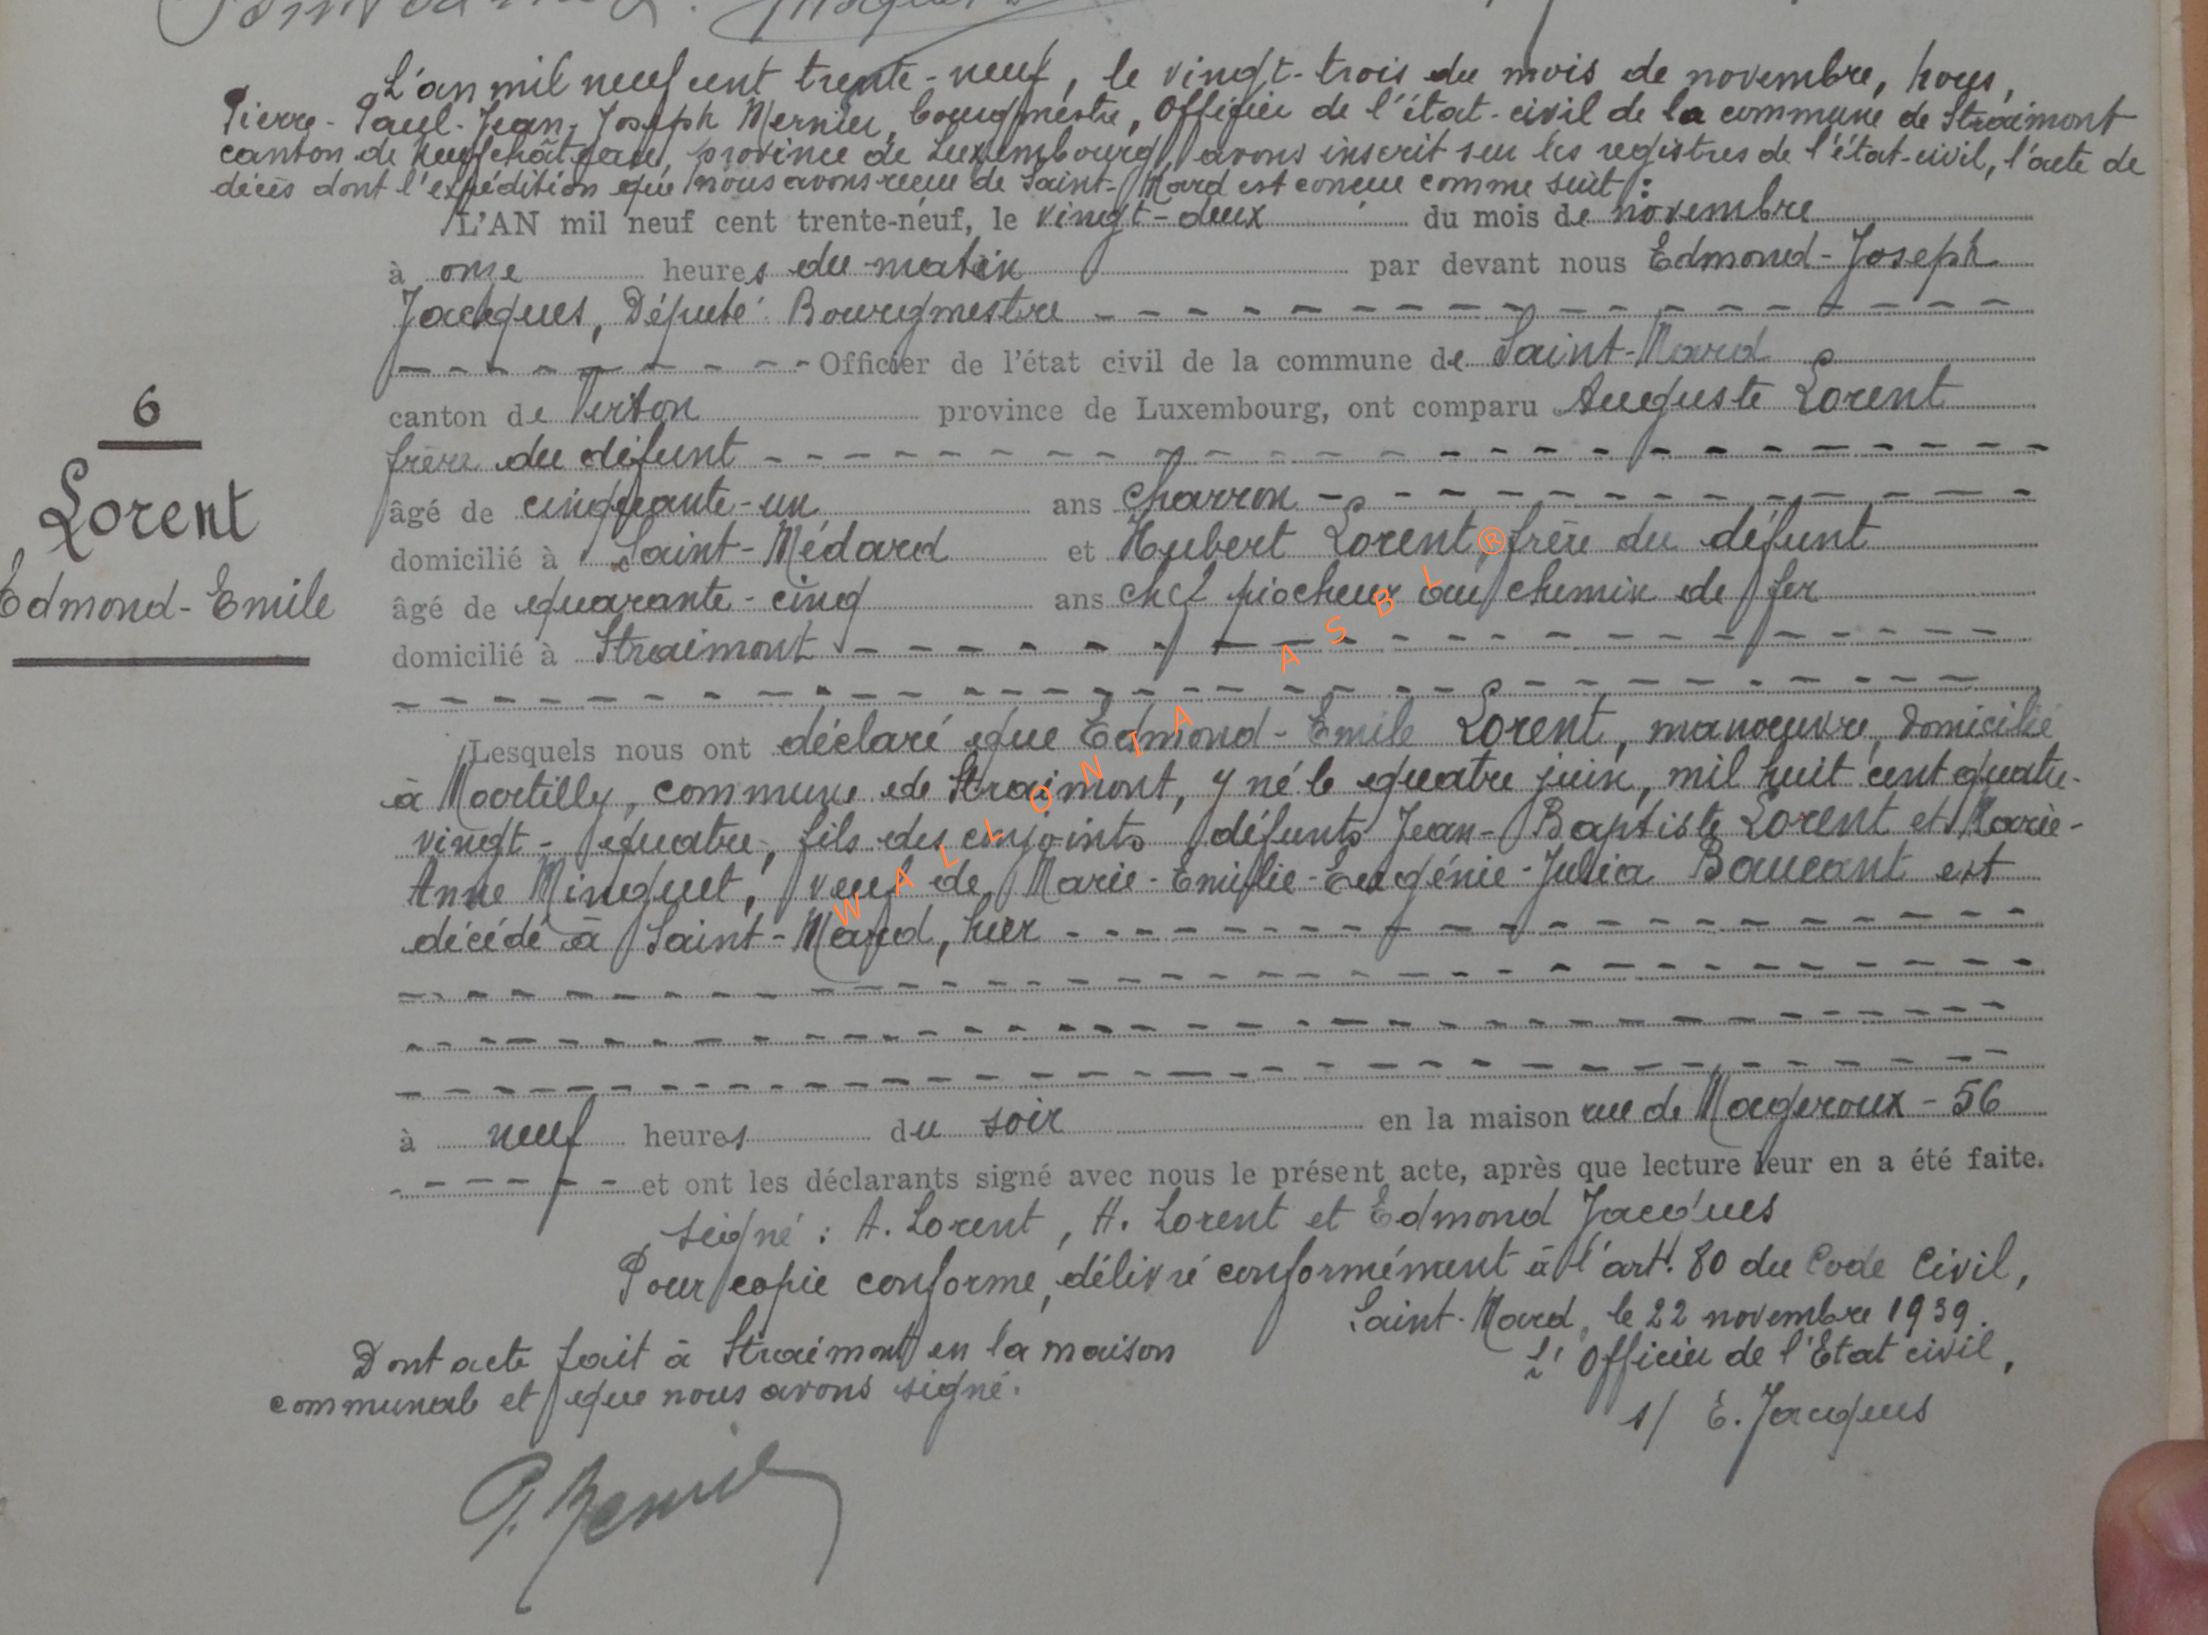 L'an mil neuf cent trente-neuf, le vingt-trois du mois de novembre, nous,
Pierre-Paul-Jean-Joseph Mernier, bourgmestre, Officier de l'état-civil de la commune de Straimont
canton de Neufchâteau, province de Luxembourg, avons inscrit sur les registres de l'état-civil, l'acte de
décès dont l'expédition que nous avons reçue de Saint-Mard est conçue comme suit :
L'AN mil neuf cent trente-neuf, le vingt-deux du mois de novembre
à onze heures du matin par devant nous Edmond-Joseph
Jacques, Député Bourgmestre
Officier de l'état civil de la commune de Saint-Mard
6
canton de Virton province de Luxembourg, ont comparu Auguste Lorent
frère du défunt
Lorent
âgé de cinquante-un ans charron
domicilié à Saint-Médard et Hubert Lorent, frère du défunt
Edmond-Emile
âgé de quarante-cinq ans chef piocheur au chemin de fer
domicilié à Straimont
Lesquels nous ont déclaré que Edmond-Emile Lorent, manoeuvre, domicilié
à Martilly, commune de Straimont, y né le quatre juin, mil huit cent quatre-
vingt-quatre, fils des conjoints défunts Jean-Baptiste Lorent et Marie-
Anne Minquet, veuf de Marie-Emilie-Eugénie-Julia Baucant est
décédé à Saint-Mard, hier
à neuf heures du soir en la maison rue de Mageroux - 56
et ont les déclarants signé avec nous le présent acte, après que lecture leur en a été faite.
signé : A. Lorent, H. Lorent et Edmond Jacques
Pour copie conforme, délivré conformément à l'art. 80 du Code Civil,
Saint-Mard, le 22 novembre 1939.
L'Officier de l'Etat civil,
s/ E. Jacques
Dont acte fait à Straimont en la maison
communale et que nous avons signé.
WALLONIA ASBL ®